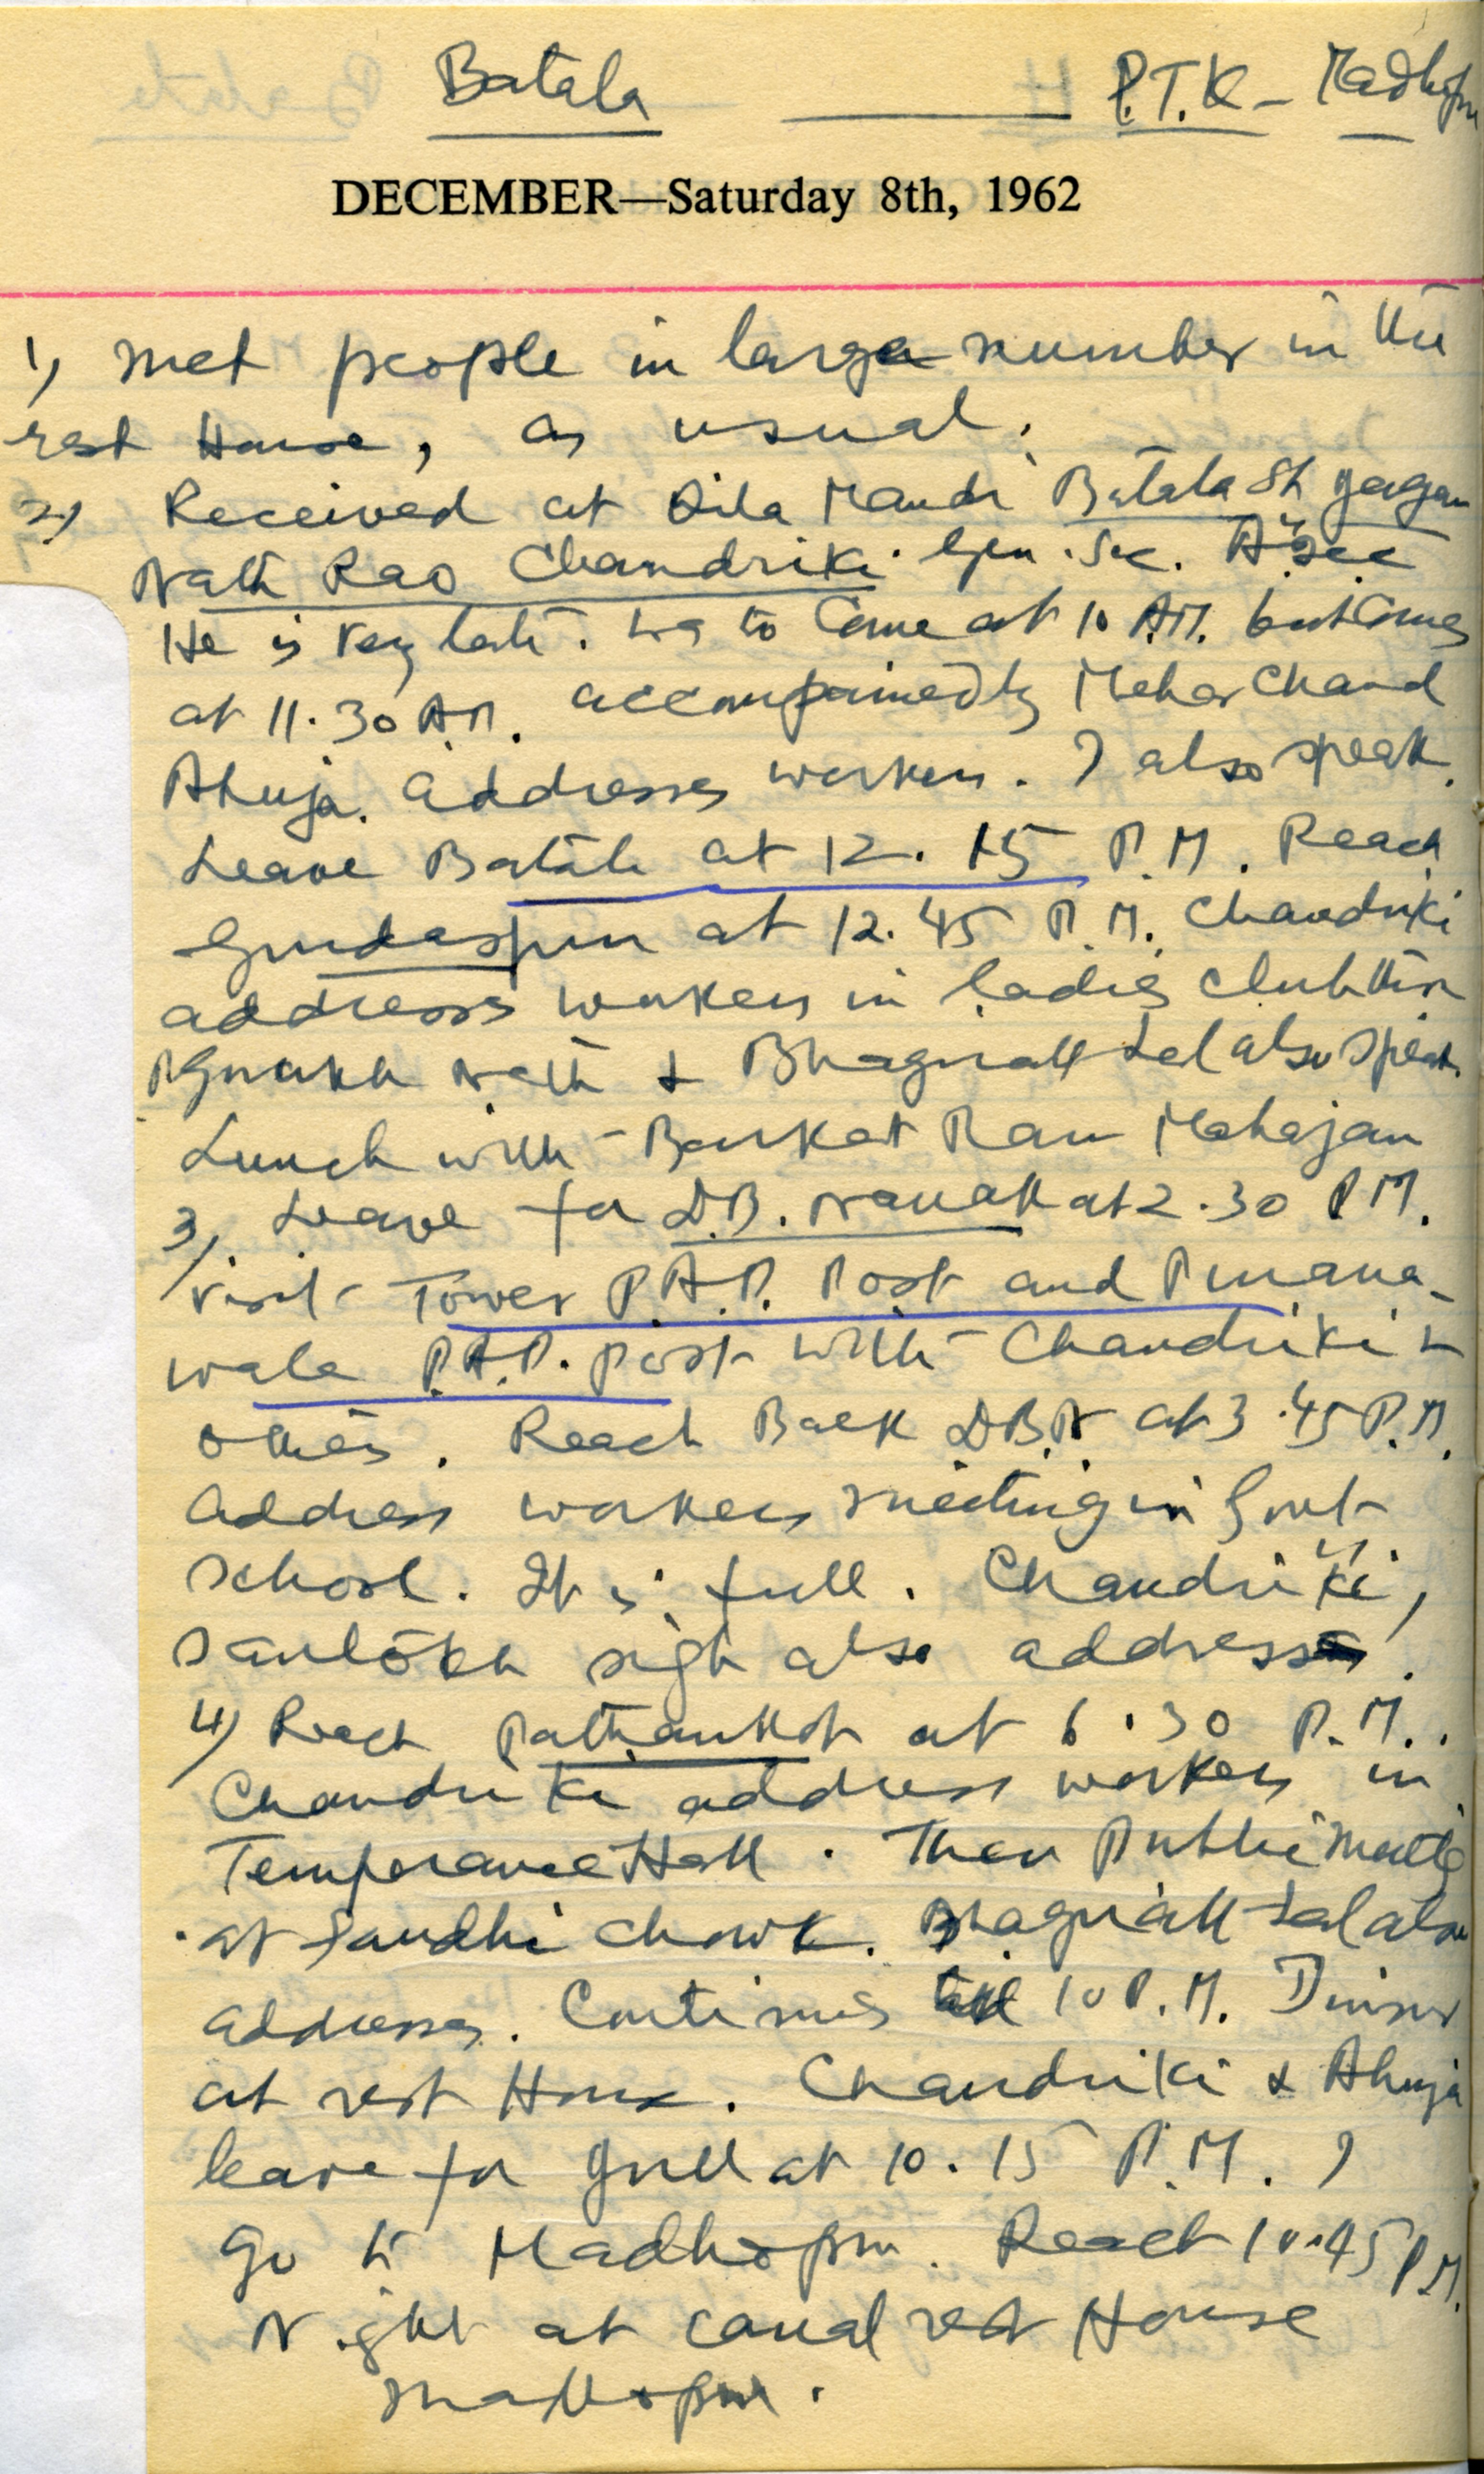 Batala — P.T.K - Madhopur
DECEMBER—Saturday 8th, 1962
1) met people in large number in the
rest House, as usual.
2) Received at Qila Mandi Batala Sh Jagan
Nath Rao Chandriki Gen. Sec.
He is very late. Was to Come at 10 A.M. but Comes
at 11.30 A.M. accompanied by Mehar Chand
Ahuja. addresses workers. I also speak.
Leave Batala at 12.15 P.M. Reach
Gurdaspur at 12.45 P.M. Chandriki
address workers in ladies club
Nath & Bhagwath Lal also speak.
Lunch with Barkat Ram Mahajan
3) Leave for D.B. Nanak at 2.30 P.M.
visit Tower P.A.P. Post and
wala P.A.P. post with Chandriki &
others. Reach Back D.B.N at 3.45 P.M.
Address workers meeting in Govt
school. It is full. Chandriki,
Santokh sigh also address.
4) Reach Pathankot at 6.30 P.M.
Chandriki address workers in
Temperance Hall. Then Public Meetig
at Gandhi chowk. Bhagwath Lal also
addresses. Continues till 10 P.M. Dinner
at rest House. Chandriki & Ahuja
leave for Jull at 10.15 P.M. I
go to Madhopur. Reach 10.45 P.M.
Night at canal rest House
Madhopur.